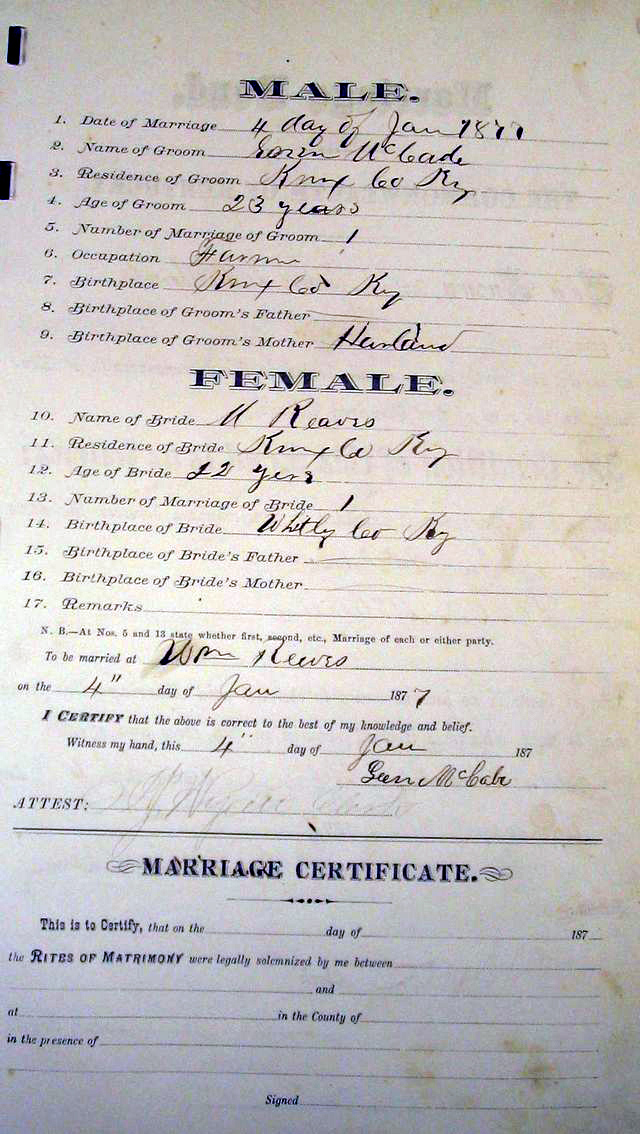 MALE.
1. Date of Marriage 4 day of Jan 1877
2. Name of Groom McCade
3. Residence of Groom Knox Co Ky
4. Age of Groom 23 years
5. Number of Marriage of Groom 1
6. Occupation Farmer
7. Birthplace Knox Co Ky
8. Birthplace of Groom's Father
9. Birthplace of Groom's Mother Harland
FEMALE.
10. Name of Bride M Reaves
11. Residence of Bride Knox Co Ky
12. Age of Bride 22 years
13. Number of Marriage of Bride 1
14. Birthplace of Bride Whitly Co Ky
15. Birthplace of Bride's Father
16. Birthplace of Bride's Mother
17. Remarks
N. B.—At Nos. 5 and 13 state whether first, second, etc., Marriage of each or either party.
To be married at Wm Reevs
on the 4" day of Jan 1877
I CERTIFY that the above is correct to the best of my knowledge and belief.
Witness my hand, this 4" day of Jan 187
McCabe
ATTEST:
MARRIAGE CERTIFICATE.
This is to Certify, that on the day of 187
the RITES OF MATRIMONY were legally solemnized by me between
and
at in the County of
in the presence of
Signed